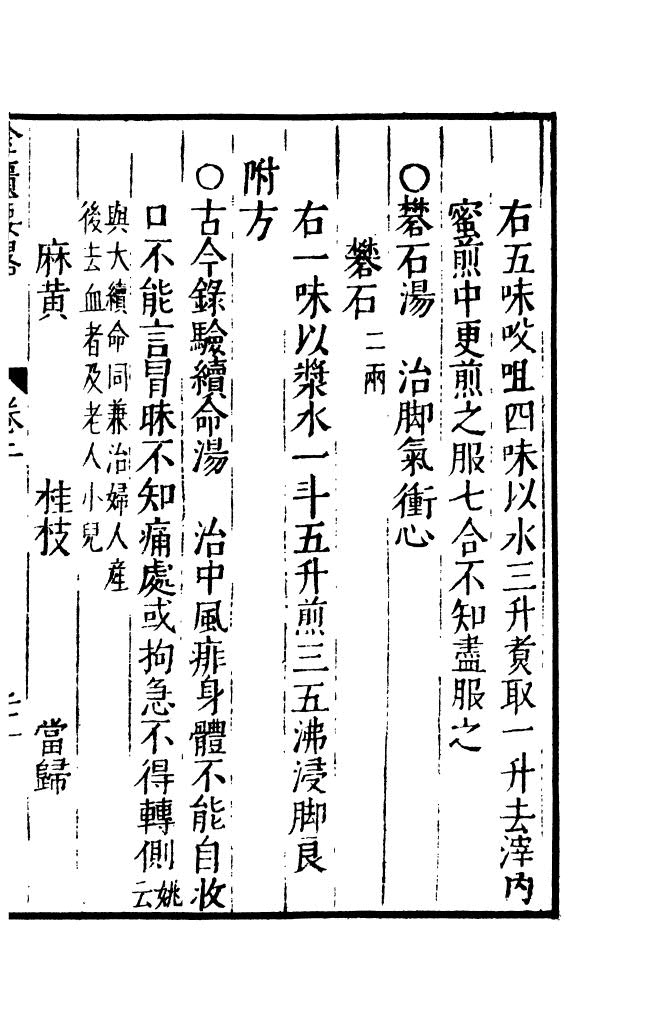 右五味㕮咀四味以水三升煑取一升去滓内
蜜煎中更煎之服七合不知盡服之
○礬石湯　治脚氣衝心
礬石二兩
右一味以漿水一斗五升煎三五沸浸脚良
附方
○古今錄驗續命湯　治中風痱身體不能自收
口不能言冒昧不知痛處或拘急不得轉側姚云
與大續命同兼治婦人産
後去血者及老人小兒
麻黄　桂枝　當歸
金匱要畧　卷上